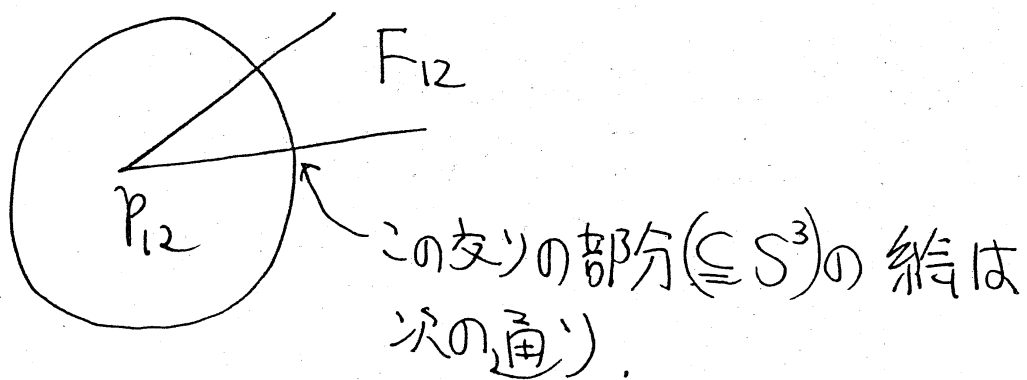 F₁₂
p₁₂
この交りの部分(⊆ S³)の 絵は
次の通り.